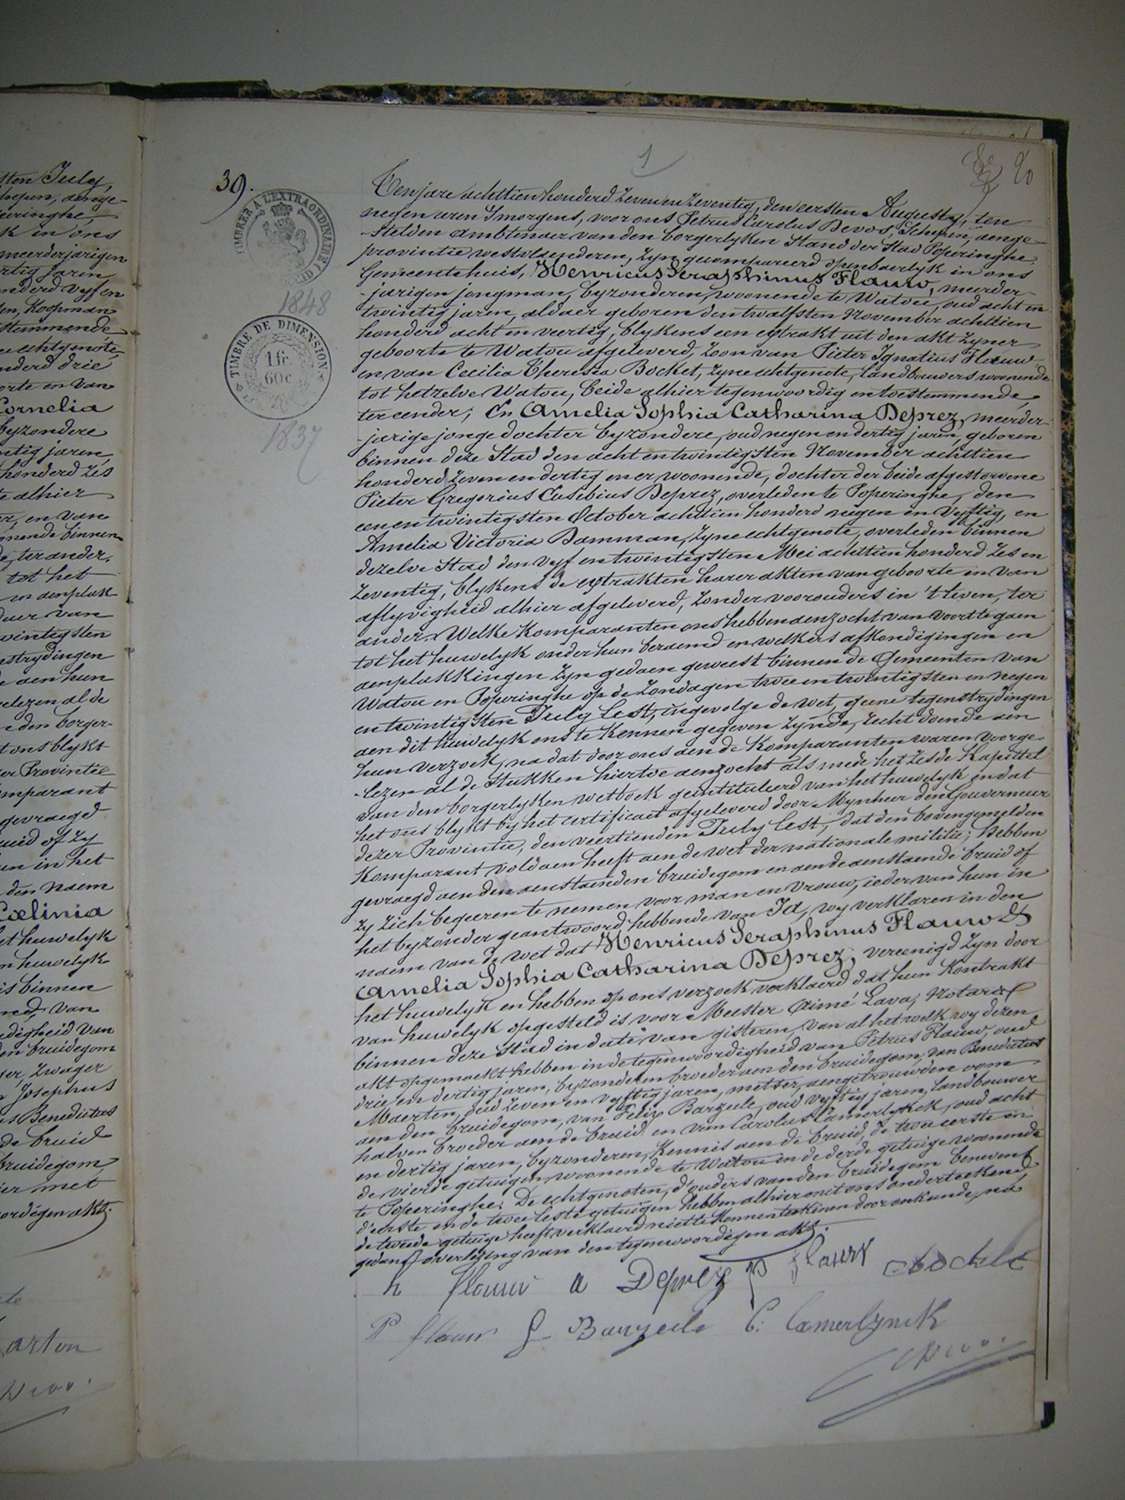 39.
1
80
TIMBRE A L'EXTRAORDINAIRE
1848
TIMBRE DE DIMENSION
1 fr
60c
1837
Ten jare achttien honderd zeven en zeventig, den eersten Augusty, ten
negen uren s'morgens, voor ons Petrus Carolus Devos, Schepen, aenge-
-stelden ambtenaer van den borgerlyken Stand der Stad Poperinghe,
provintie westvlaenderen, zyn gecompareerd openbaerlyk in ons
Gemeentehuis, Henricus Seraphinus Flauw, meerder-
-jarigen jongman, byzonderen, woonende te Watou, oud acht en
twintig jaren, aldaer geboren den twalfsten November achttien
honderd acht en veertig, blykens een extrakt uit den akt zyner
geboorte te Watou afgeleverd, zoon van Pieter Ignatius Flauw
en van Cecilia Theresia Bocket, zyne echtgenote, landbouwers woonende
tot hetzelve Watou, beide alhier tegenwoordig en toestemmende,
ter eender; En Amelia Sophia Catharina Deprez, meerder-
-jarige jonge dochter byzondere, oud negen en dertig jaren, geboren
binnen deze Stad den acht en twintigsten November achttien
honderd zeven en dertig en er woonende, dochter der beide afgestorvene
Pieter Gregorius Eusebius Deprez, overleden te Poperinghe, den
een en twintigsten October achttien honderd negen en vyftig, en
Amelia Victoria Damman, zyne echtgenote, overleden binnen
dezelve Stad den vyf en twintigsten Mei achttien honderd zes en
zeventig, blykens de extrakten harer akten van geboorte en van
aflyvigheid alhier afgeleverd, zonder voorouders in 't leven, ter
ander. Welke Komparanten ons hebben aenzocht van voort te gaen
tot het huwelyk onder hun beraemd en welkers afkondigingen en
aenplakkingen zyn gedaen geweest binnen de Gemeenten van
Watou en Poperinghe op de zondagen twee en twintigsten en negen
en twintigsten July lest, ingevolge de wet, geene tegenstrydingen
aen dit huwelyk ons te kennen gegeven zynde, recht doende aen
hun verzoek, na dat door ons aen de Komparanten waren voorge-
-lezen al de stukken hiertoe aenzocht als mede het zesde Kapittel
van den borgerlyken wetboek geintituleerd van het huwelyk en dat
het ons blykt by het certificaet afgeleverd door Mynheer den Gouverneur
dezer Provintie, den veertienden July lest, dat den bovengemelden
Komparant voldaen heeft aen de wet der nationale militie; hebben
gevraegd aen den aenstaenden bruidegom en aen de aenstaende bruid of
zy zich begeeren te nemen voor man en vrouw, ieder van hun in
het byzonder geantwoord hebbende van Ja, wy verklaren in den
naem van de wet dat Henricus Seraphinus Flauw &
Amelia Sophia Catharina Deprez, vereenigd zyn door
het huwelyk en hebben op ons verzoek verklaerd dat hun Kontrakt
van huwelyk opgesteld is voor Meester Aimé Lava, Notaris
binnen deze Stad in date van gisteren, van al het welk wy dezen
akt opgemaekt hebben in de tegenwoordigheid van Petrus Flauw, oud
drie en dertig jaren, byzonderen broeder aen den bruidegom, van Benedictus
Maerten, oud zeven en vyftig jaren, metser, aengetrouwden oom
aen den bruidegom, van Felix Barzeele, oud vyftig jaren, landbouwer
halven broeder aen de bruid en van Carolus Camerlynck, oud acht
en dertig jaren, byzonderen, Kennis aen de bruid, de twee eerste en
de vierde getuigen woonende te Watou en de derde getuige woonende
te Poperinghe; De echtgenoten, d'ouders van den bruidegom benevens
d'eerste en de twee leste getuigen hebben alhier met ons onderteekend,
de tweede getuige heeft verklaerd niet te Konnen teekenen door onkunde, na
gedane overlezing van den tegenwoordigen akt.
h flauw a Deprez P flauw c bockket
P flauw F Barzeele C: Camerlynck